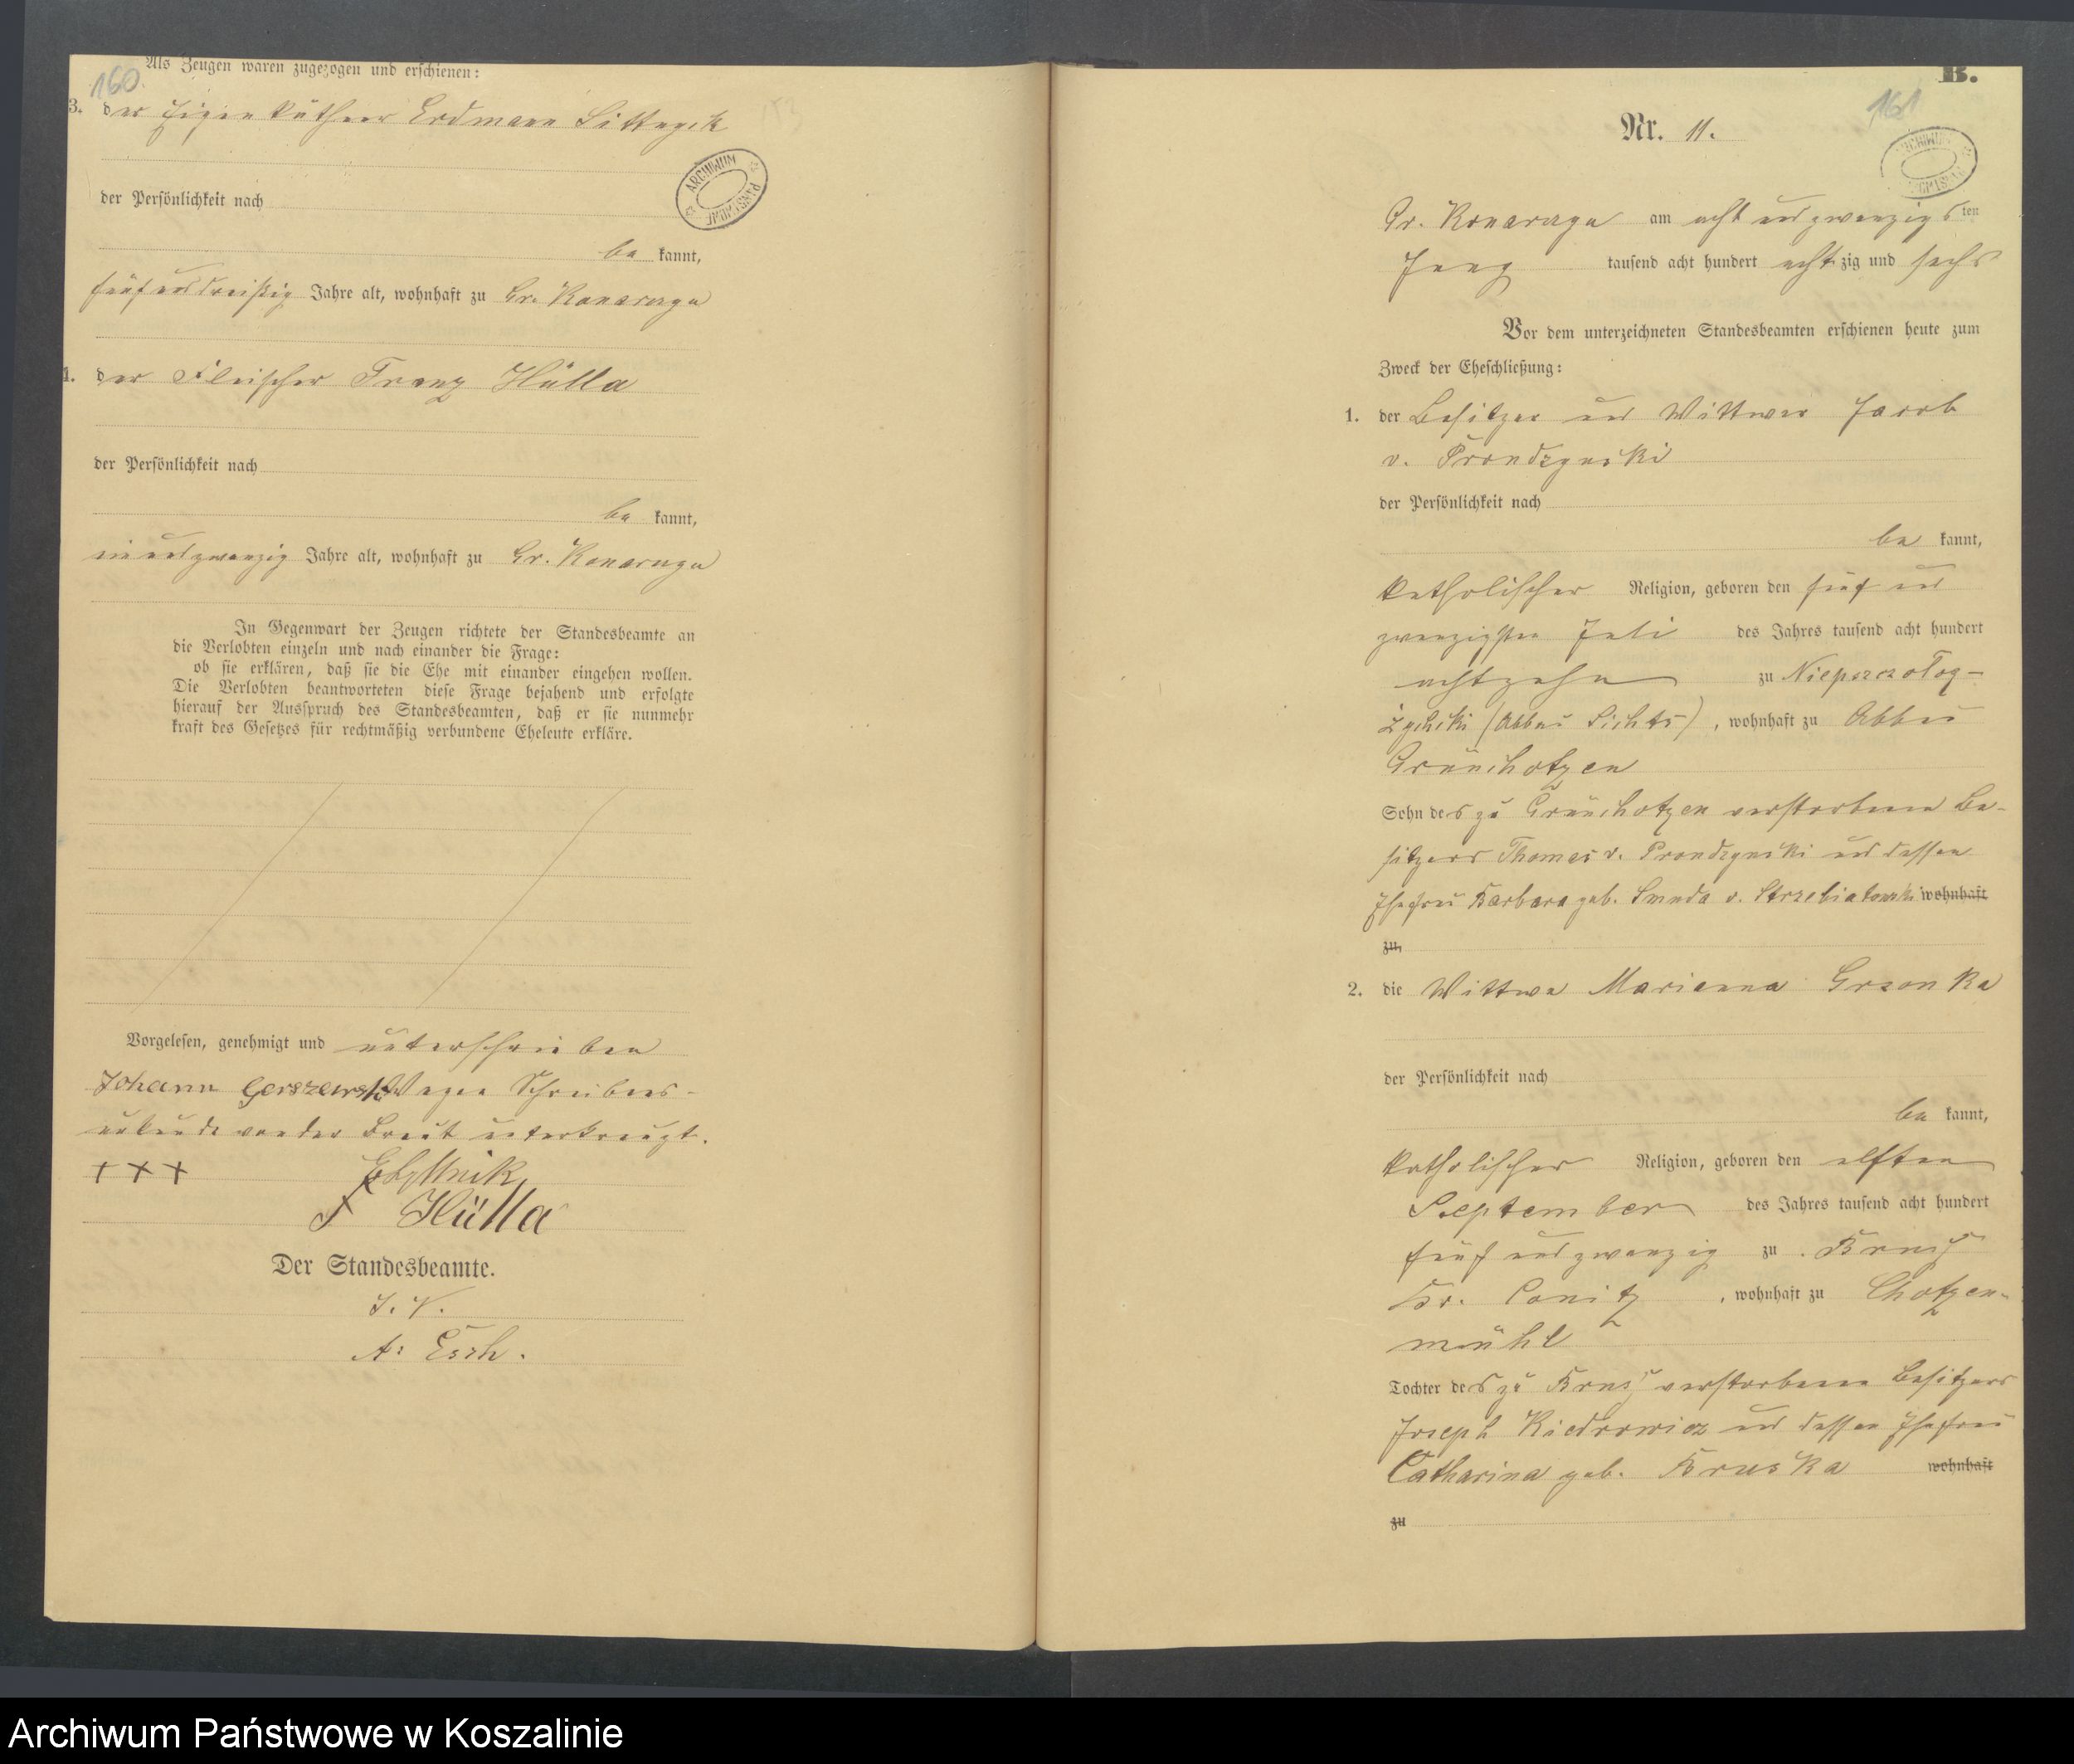 160.
Als Zeugen waren zugezogen und erschienen:
3. der Eigenkäthner Erdmann
der Persönlichkeit nach
be kannt,
fünfunddreißig Jahre alt, wohnhaft zu Gr. Konarczyn
4. der Fleischer Franz Hülla
der Persönlichkeit nach
be kannt,
undzwanzig Jahre alt, wohnhaft zu Gr. Konarczyn
In Gegenwart der Zeugen richtete der Standesbeamte an
die Verlobten einzeln und nach einander die Frage:
ob sie erklären, daß sie die Ehe mit einander eingehen wollen.
Die Verlobten beantworteten diese Frage bejahend und erfolgte
hierauf der Ausspruch des Standesbeamten, daß er sie nunmehr
kraft des Gesetzes für rechtmäßig verbundene Eheleute erkläre.
Vorgelesen, genehmigt und unterschrieben
Johann Gerszewski Wegen Schreibens-
unkunde von der Braut unterkreuzt.
+++
F Hülla
Der Standesbeamte.
J. V.
A. Esch.
ARCHIWUM PAŃSTWOWE
B.
161
Nr. 11.
Gr. Konarczyn am acht und zwanzigsten
Juny tausend acht hundert achtzig und sechs
Vor dem unterzeichneten Standesbeamten erschienen heute zum
Zweck der Eheschließung:
1. der Besitzer und Wittwer Jacob
v. Prondzynski
der Persönlichkeit nach
be kannt,
katholischer Religion, geboren den fünf und
zwanzigsten Juli des Jahres tausend acht hundert
achtzehn zu
(Abbau Lichts), wohnhaft zu Abbau
Grünchotzen
Sohn des zu Grünchotzen verstorbenen Be-
sitzers Thomas v. Prondzynski und dessen
Ehefrau Barbara geb. Smuda v. Strzebiatowski wohnhaft
zu,
2. die Wittwe Marianna Grzonka
der Persönlichkeit nach
be kannt,
katholischer Religion, geboren den elften
September des Jahres tausend acht hundert
fünf und zwanzig zu Bruß
Kr. Conitz, wohnhaft zu Chotzen-
mühl
Tochter des zu Bruß verstorbenen Besitzers
Joseph Kiedrowicz und dessen Ehefrau
Catharina geb. Bruska wohnhaft
zu
Archiwum Państwowe w Koszalinie